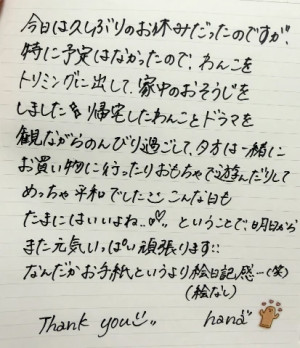 今日は久しぶりのお休みだったのですが、
特に予定はなかったので、わんこを
トリミングに出して、家中のおそうじを
しました 帰宅したわんことドラマを
観ながらのんびり過ごして、夕方は一緒に
お買い物に行ったりおもちゃで遊んだりして
めっちゃ平和でした こんな日も
たまにはいいよね..♡ ということで、明日から
また元気いっぱい頑張ります!!
なんだかお手紙というより絵日記感…(笑)
(絵なし)
Thank you hana